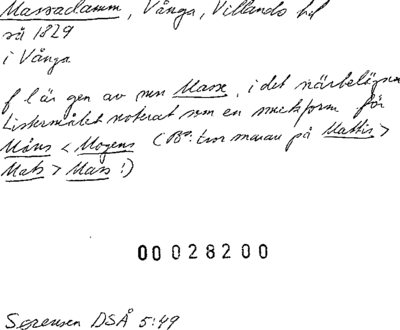 Massadamm, Vånga, Villands hd
så 1829
i Vånga
f l är gen av mn Masse, i det närbelägna
Listermålet noterat som en smekform för
Måns < Mogens (Bg. tror snarare på Mattis >
Mats > Mass!)
00028200
Sørensen DSÅ 5:49